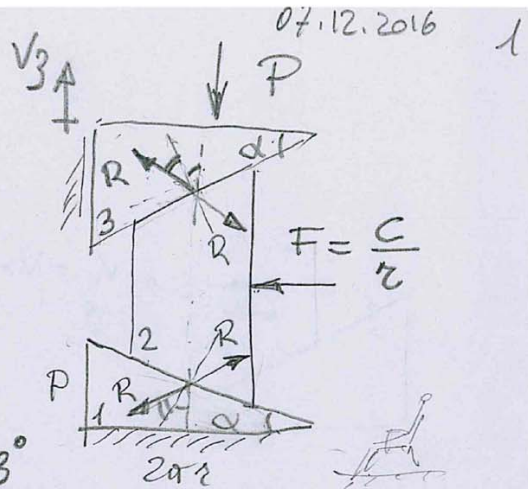 07.12.2016 1
V3
P
R α
3 R
F = C/r
2 R
P R
1 α
3°
2πr